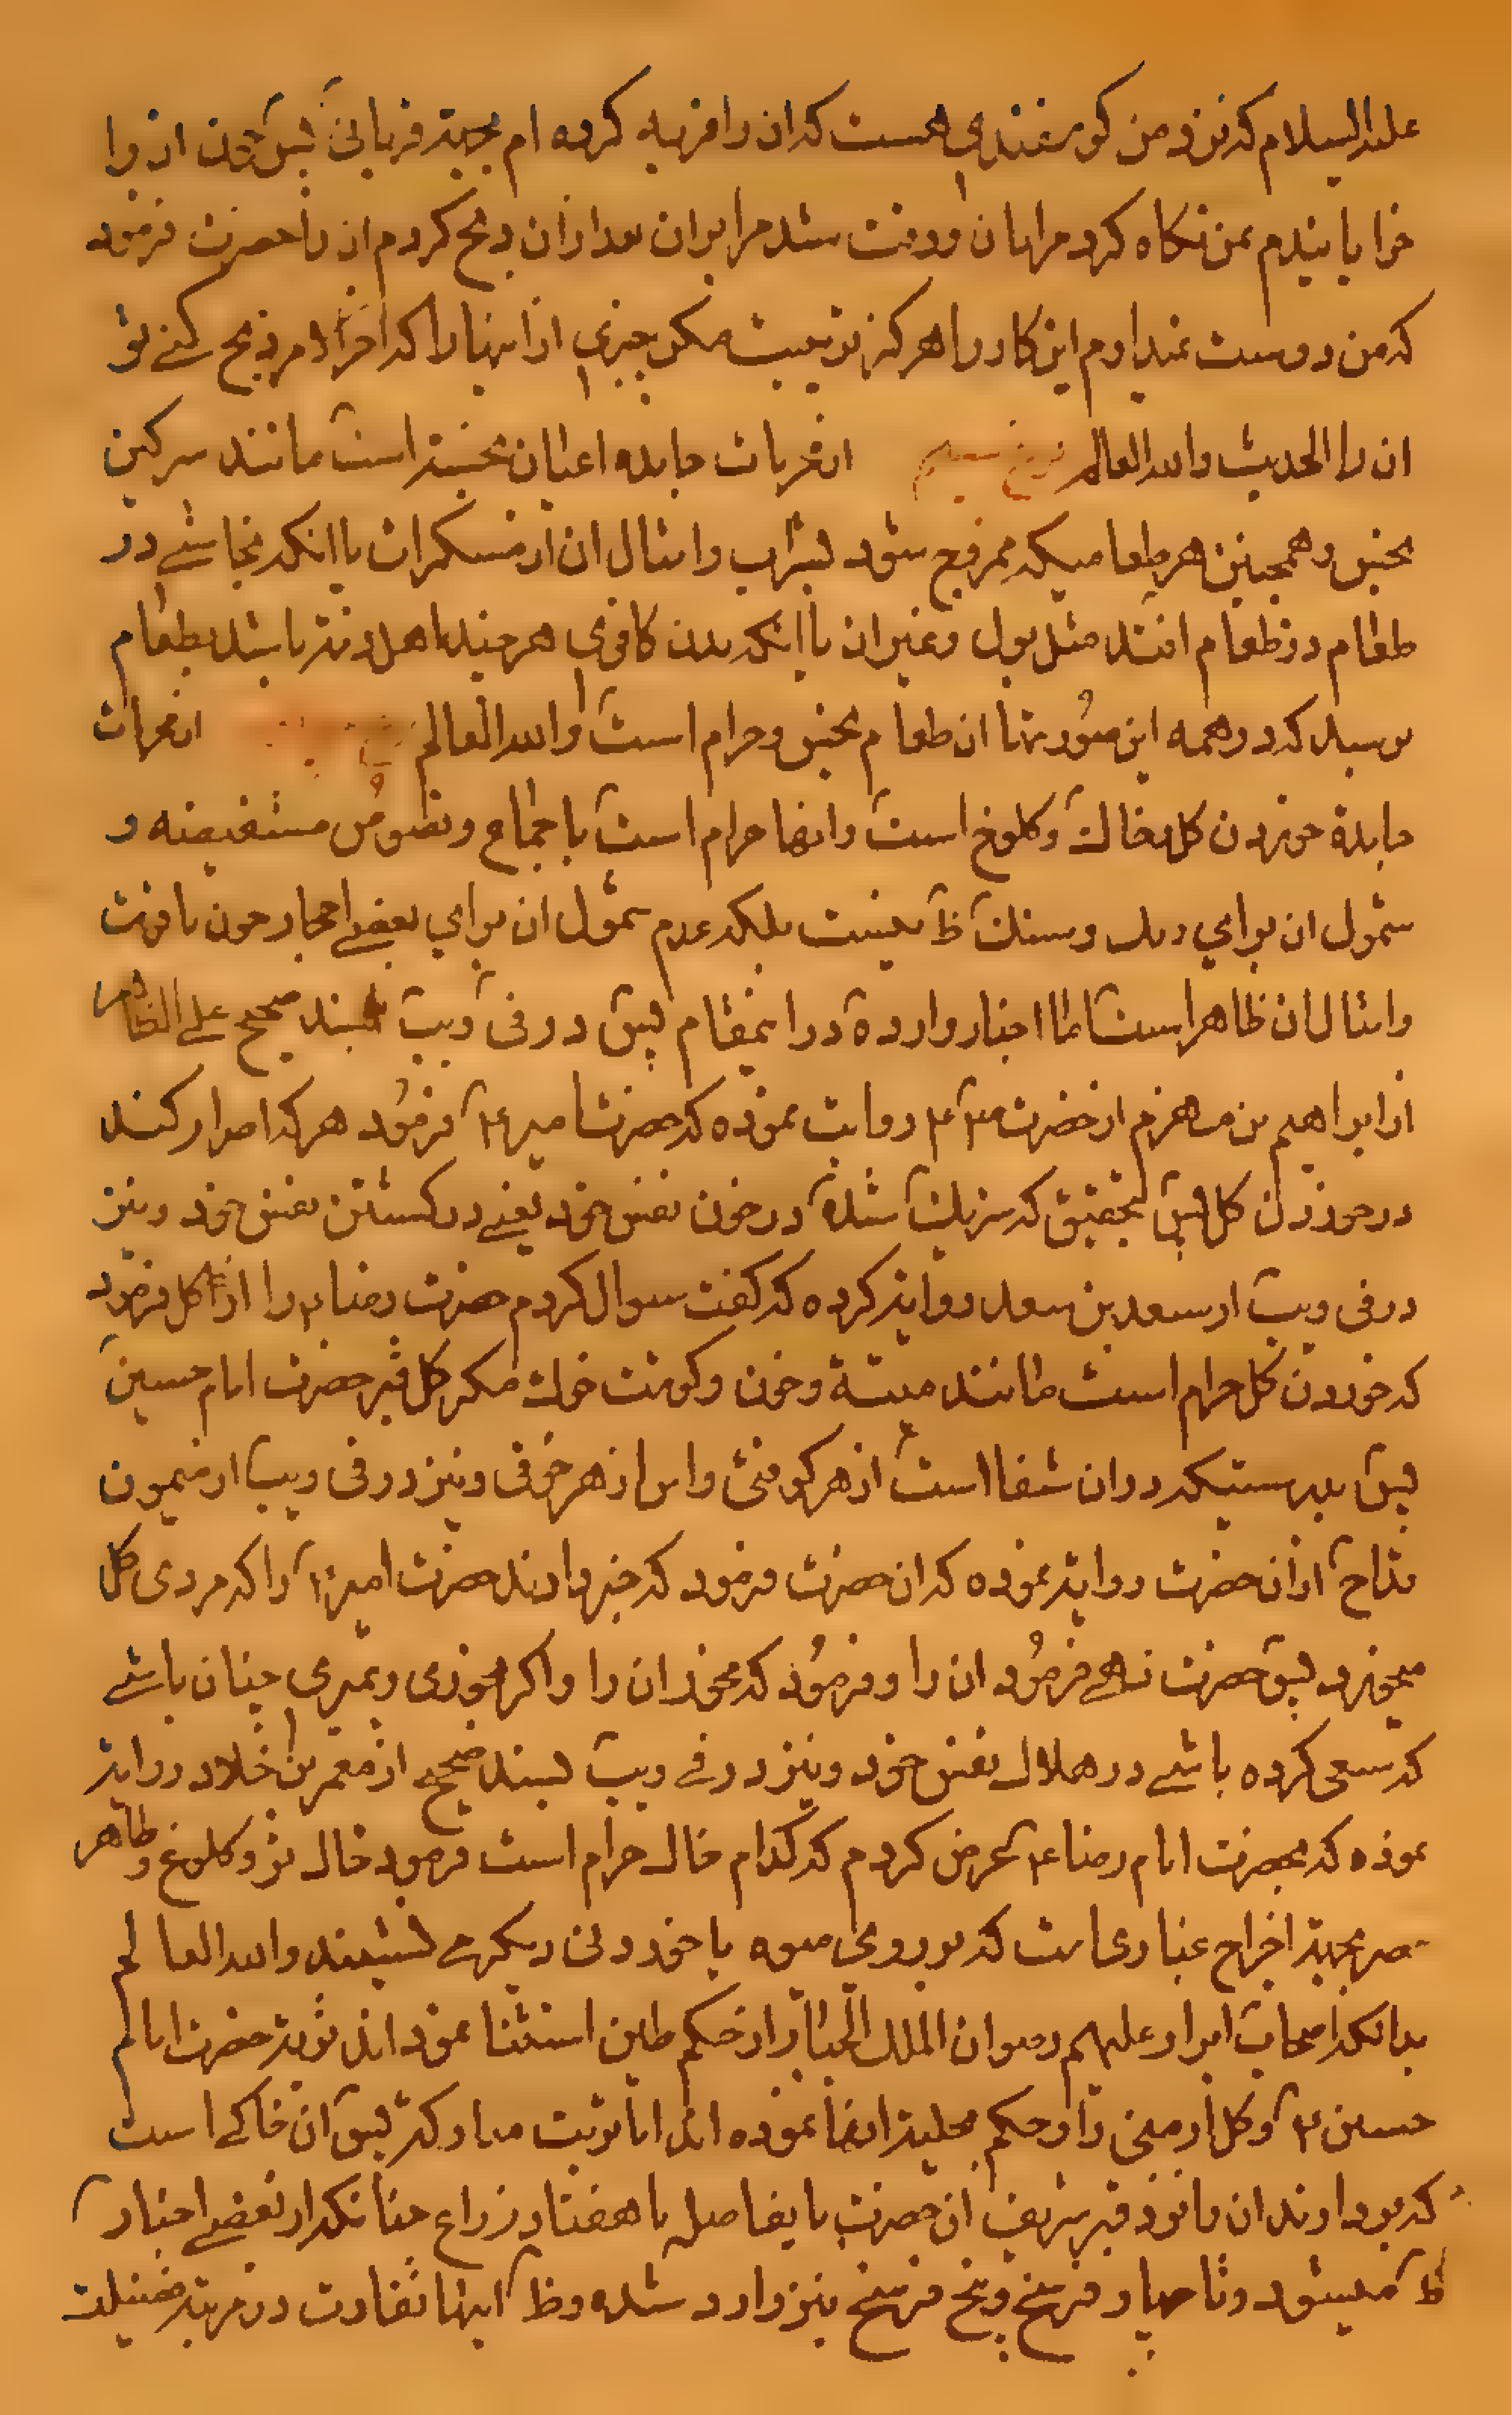 علیه السلام که نزد من کوسفندی هست که ان را فربه کرده ام بجهة قربانی پس چون ان را
خوابانیدم بمن نکاه کرد مرا بان ورقت شد مرا بران بعد ازان ذبح کردم ان را حضرت فرمود
که من دوست نمیدارم این کار را هرکز تربیت مکن چیزی از اینها را که اخر الامر ذبح کنی تو
ان را الحدیث والله العالم نوع سیم از محرمات جامده اعیان نجسه است مانند سرکین
نجس و همچنین هر طعامیکه ممزوج شود بشراب و امثال ان از مسکرات یا انکه نجاستی در
طعام در طعام افتد مثل بول و غیر ان یا انکه بدن کافری هر چند اهل ذمه باشد بطعام
برسد که در همه این صورتها ان طعام نجس و حرام است والله العالم از محرمات
جامدة خوردن کل و خاک و کلوخ است و انها حرام است باجماع و نصوص مستفیضه و
شمول ان برای ریک و سنک ظ نیست بلکه عدم شمول ان برای بعضی احجار چون یاقوت
و امثال ان ظاهر است اما اخبار وارده در اینمقام پس در فی ویب بسند صحیح علی الظاهر
از ابراهیم بن مهزم از حضرت روایت نموده که حضرت امیر ۴ فرمود هر که اصرار کند
در خوردن کل پس بتحقیق که شریک شده در خون نفس خود یعنی در کشتن نفس خود و نیز
در فی ویب از سعد بن سعد روایة کرده که کفت سوال کردم حضرت رضا ۴ را از کل فرمود
که خوردن کل حرام است مانند میتة و خون و کوشت خوک مکر کل قبر حضرت امام حسین
پس بدرستیکه در ان شفا است از هر کوفتی و امن از هر خوفی و نیز در فی ویب از میمون
قداح از ان حضرت روایة نموده که ان حضرت فرمود که خبر دادند حضرت امیر ۴ را که مردی کل
میخورد پس حضرت نهی فرمود ان را و فرمود که مخور ان را و اکر بخوری و بمیری چنان باشی
که سعی کرده باشی در هلاک نفس خود و نیز در فی ویب بسند صحیح از معمر بن خلاد روایة
نموده که بحضرت امام رضا ۴ عرض کردم که کدام خاک حرام است فرمود خاک تر و کلوخ و ظاهر
حصر بجهة اخراج غباری است که بر روی میوه یا خوردنی دیکری نشیند والله العالم
بدانکه اصحاب ابرار علیهم رضوان الملک الجبار از حکم طین استثنا نموده اند تربة حضرت امام
حسین ۴ و کل ارمنی را و حکم بحلیة انها نموده اند اما تربت مبارکه پس ان خاکی است
که بردارند ان را نزد قبر شریف ان حضرت یا بفاصله با هفتاد زراع چنانکه از بعضی اخبار
ظ میشود و تا چهار فرسخ و پنج فرسخ نیز وارد شده و ظ اینها تفاوت در مرتبه فضیلت